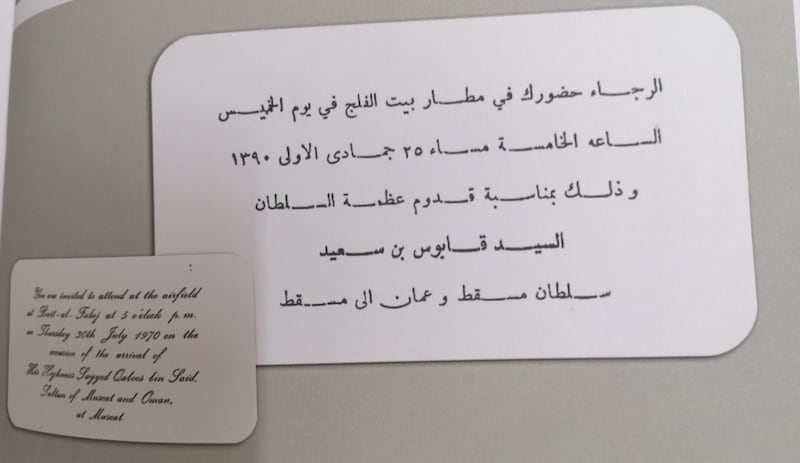 الرجاء حضورك في مطار بيت الفلج في يوم الخميس
الساعه الخامسة مساء ٢٥ جمادى الاولى ١٣٩٠
و ذلك بمناسبة قدوم عظمة السلطان
السيد قابوس بن سعيد
سلطان مسقط و عمان الى مسقط
You are invited to attend at the airfield
at Beit-al-Falej at 5 o'clock p.m.
on Thursday 30th July 1970 on the
occasion of the arrival of
His Highness Sayyed Qaboos bin Said,
Sultan of Muscat and Oman,
at Muscat.